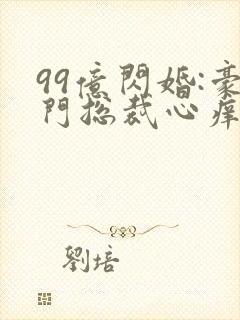 99億閃婚:豪
門総裁心痒
劉培